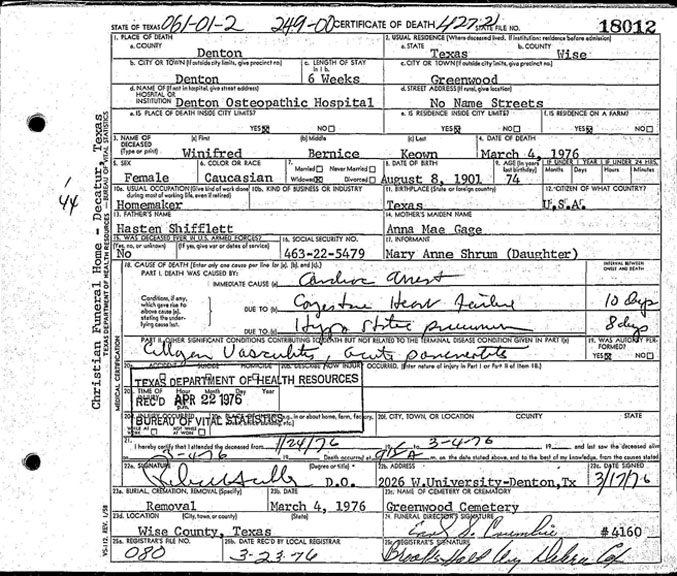 STATE OF TEXAS 061-01-2 249-00 CERTIFICATE OF DEATH 427.21 STATE FILE NO. 18012
1. PLACE OF DEATH 2. USUAL RESIDENCE (Where deceased lived. If institution: residence before admission)
a. COUNTY Denton a. STATE Texas b. COUNTY Wise
b. CITY OR TOWN (If outside city limits, give precinct no.) Denton c. LENGTH OF STAY in 1 b. 6 Weeks c. CITY OR TOWN (If outside city limits, give precinct no.) Greenwood
d. NAME OF (If not in hospital, give street address) HOSPITAL OR INSTITUTION Denton Osteopathic Hospital d. STREET ADDRESS (If rural, give location) No Name Streets
e. IS PLACE OF DEATH INSIDE CITY LIMITS? YES NO e. IS RESIDENCE INSIDE CITY LIMITS? YES NO f. IS RESIDENCE ON A FARM? YES NO
3. NAME OF DECEASED (Type or print) (a) First Winifred (b) Middle Bernice (c) Last Keown 4. DATE OF DEATH March 4, 1976
5. SEX Female 6. COLOR OR RACE Caucasian 7. Married Never Married Widowed Divorced 8. DATE OF BIRTH August 8, 1901 9. AGE (In years last birthday) 74 IF UNDER 1 YEAR Months Days IF UNDER 24 HRS. Hours Minutes
10a. USUAL OCCUPATION (Give kind of work done during most of working life, even if retired) Homemaker 10b. KIND OF BUSINESS OR INDUSTRY 11. BIRTHPLACE (State or foreign country) Texas 12. CITIZEN OF WHAT COUNTRY? U.S.A.
13. FATHER'S NAME Hasten Shifflett 14. MOTHER'S MAIDEN NAME Anna Mae Gage
15. WAS DECEASED EVER IN U.S. ARMED FORCES? (Yes, no, or unknown) No (If yes, give war or dates of service) 16. SOCIAL SECURITY NO. 463-22-5479 17. INFORMANT Mary Anne Shrum (Daughter)
18. CAUSE OF DEATH (Enter only one cause per line for (a), (b), and (c).) INTERVAL BETWEEN ONSET AND DEATH
PART I. DEATH WAS CAUSED BY:
IMMEDIATE CAUSE (a) Cardiac Arrest
Conditions, if any, which gave rise to above cause (a), stating the underlying cause last.
DUE TO (b) Congestive Heart Failure 10 days
DUE TO (c) Hypostatic pneumonia 8 days
PART II. OTHER SIGNIFICANT CONDITIONS CONTRIBUTING TO DEATH BUT NOT RELATED TO THE TERMINAL DISEASE CONDITION GIVEN IN PART I(a) 19. WAS AUTOPSY PERFORMED? YES NO
Collagen Vasculitis, acute pancreatitis
20a. ACCIDENT SUICIDE HOMICIDE 20b. DESCRIBE HOW INJURY OCCURRED. (Enter nature of injury in Part I or Part II of item 18.)
TEXAS DEPARTMENT OF HEALTH RESOURCES
REC'D APR 22 1976
BUREAU OF VITAL STATISTICS
TIME OF INJURY Hour Month Day Year
20f. CITY, TOWN, OR LOCATION COUNTY STATE
21. I hereby certify that I attended the deceased from 1/24/76 19 to 3-4-76 19 and last saw the deceased alive
3-4-76 19 Death occurred at m. on the date stated above, and to the best of my knowledge, from the causes stated
22a. SIGNATURE (Degree or title) D.O. 22b. ADDRESS 2026 W.University-Denton,Tx 22c. DATE SIGNED 3/17/76
23a. BURIAL, CREMATION, REMOVAL (Specify) Removal 23b. DATE March 4, 1976 23c. NAME OF CEMETERY OR CREMATORY Greenwood Cemetery
23d. LOCATION (City, town, or county) (State) Wise County, Texas 24. FUNERAL DIRECTOR'S SIGNATURE #4160
25a. REGISTRAR'S FILE NO. 080 25b. DATE REC'D BY LOCAL REGISTRAR 3-23-76 25c. REGISTRAR'S SIGNATURE
Christian Funeral Home - Decatur, Texas
TEXAS DEPARTMENT OF HEALTH RESOURCES — BUREAU OF VITAL STATISTICS
MEDICAL CERTIFICATION
VS-112, REV. 1/58
44